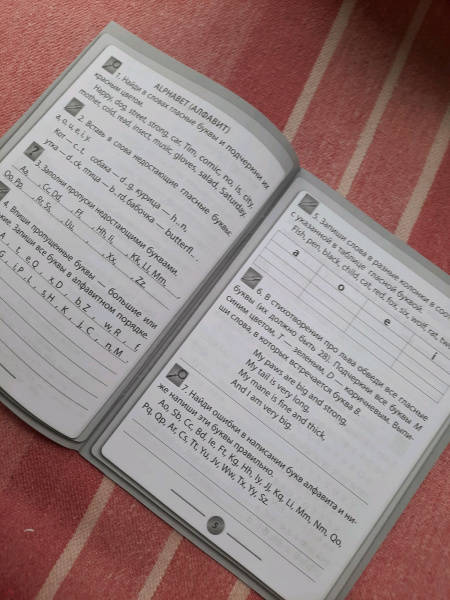 ALPHABET (АЛФАВИТ)
1. Найди в словах гласные буквы и подчеркни их
красным цветом.
Happy, dog, street, strong, car, Tim, comic, no, is, city,
mother, cold, read, insect, music, gloves, salad, Saturday.
2. Вставь в слова недостающие гласные буквы:
a, o, u, e, i, y.
Кот — c_t, собака — d_g, курица — h_n,
утка — d_ck, птица — b_rd, бабочка — butterfl_.
3. Заполни пропуски недостающими буквами.
Aa, __, Cc, Dd, __, Ff, __, Hh, Ii, __, Kk, Ll, Mm, __,
Oo, Pp, __, Rr, Ss, __, Uu, __, __, Xx, __, Zz.
4. Впиши пропущенные буквы — большие или
Запиши все буквы в алфавитном порядке.
5. Запиши слова в разные колонки в
с указанной в таблице гласной буквой.
Fish, pen, black, chills, cat, red, fox, six, wolf, zat,
a
o
e
i
6. В стихотворении про льва обведи все гласные
буквы (их должно быть 28). Подчеркни все буквы M
синим цветом, T — зеленым, D — коричневым. Выпи-
ши слова, в которых встречается буква B.
My paws are big and strong,
My tail is very long,
My mane is fine and thick,
And I am very big.
7. Найди ошибки в написании букв алфавита и ни-
же напиши эти буквы правильно.
Ao, Sb, Cc, Bd, Ie, Ft, Kg, Hh, Iy, Jj, Kq, Li, Mm, Nm, Qo,
Pq, Qp, Ar, Cs, Tt, Yu, Jv, Ww, Tx, Yy, Sz.
5